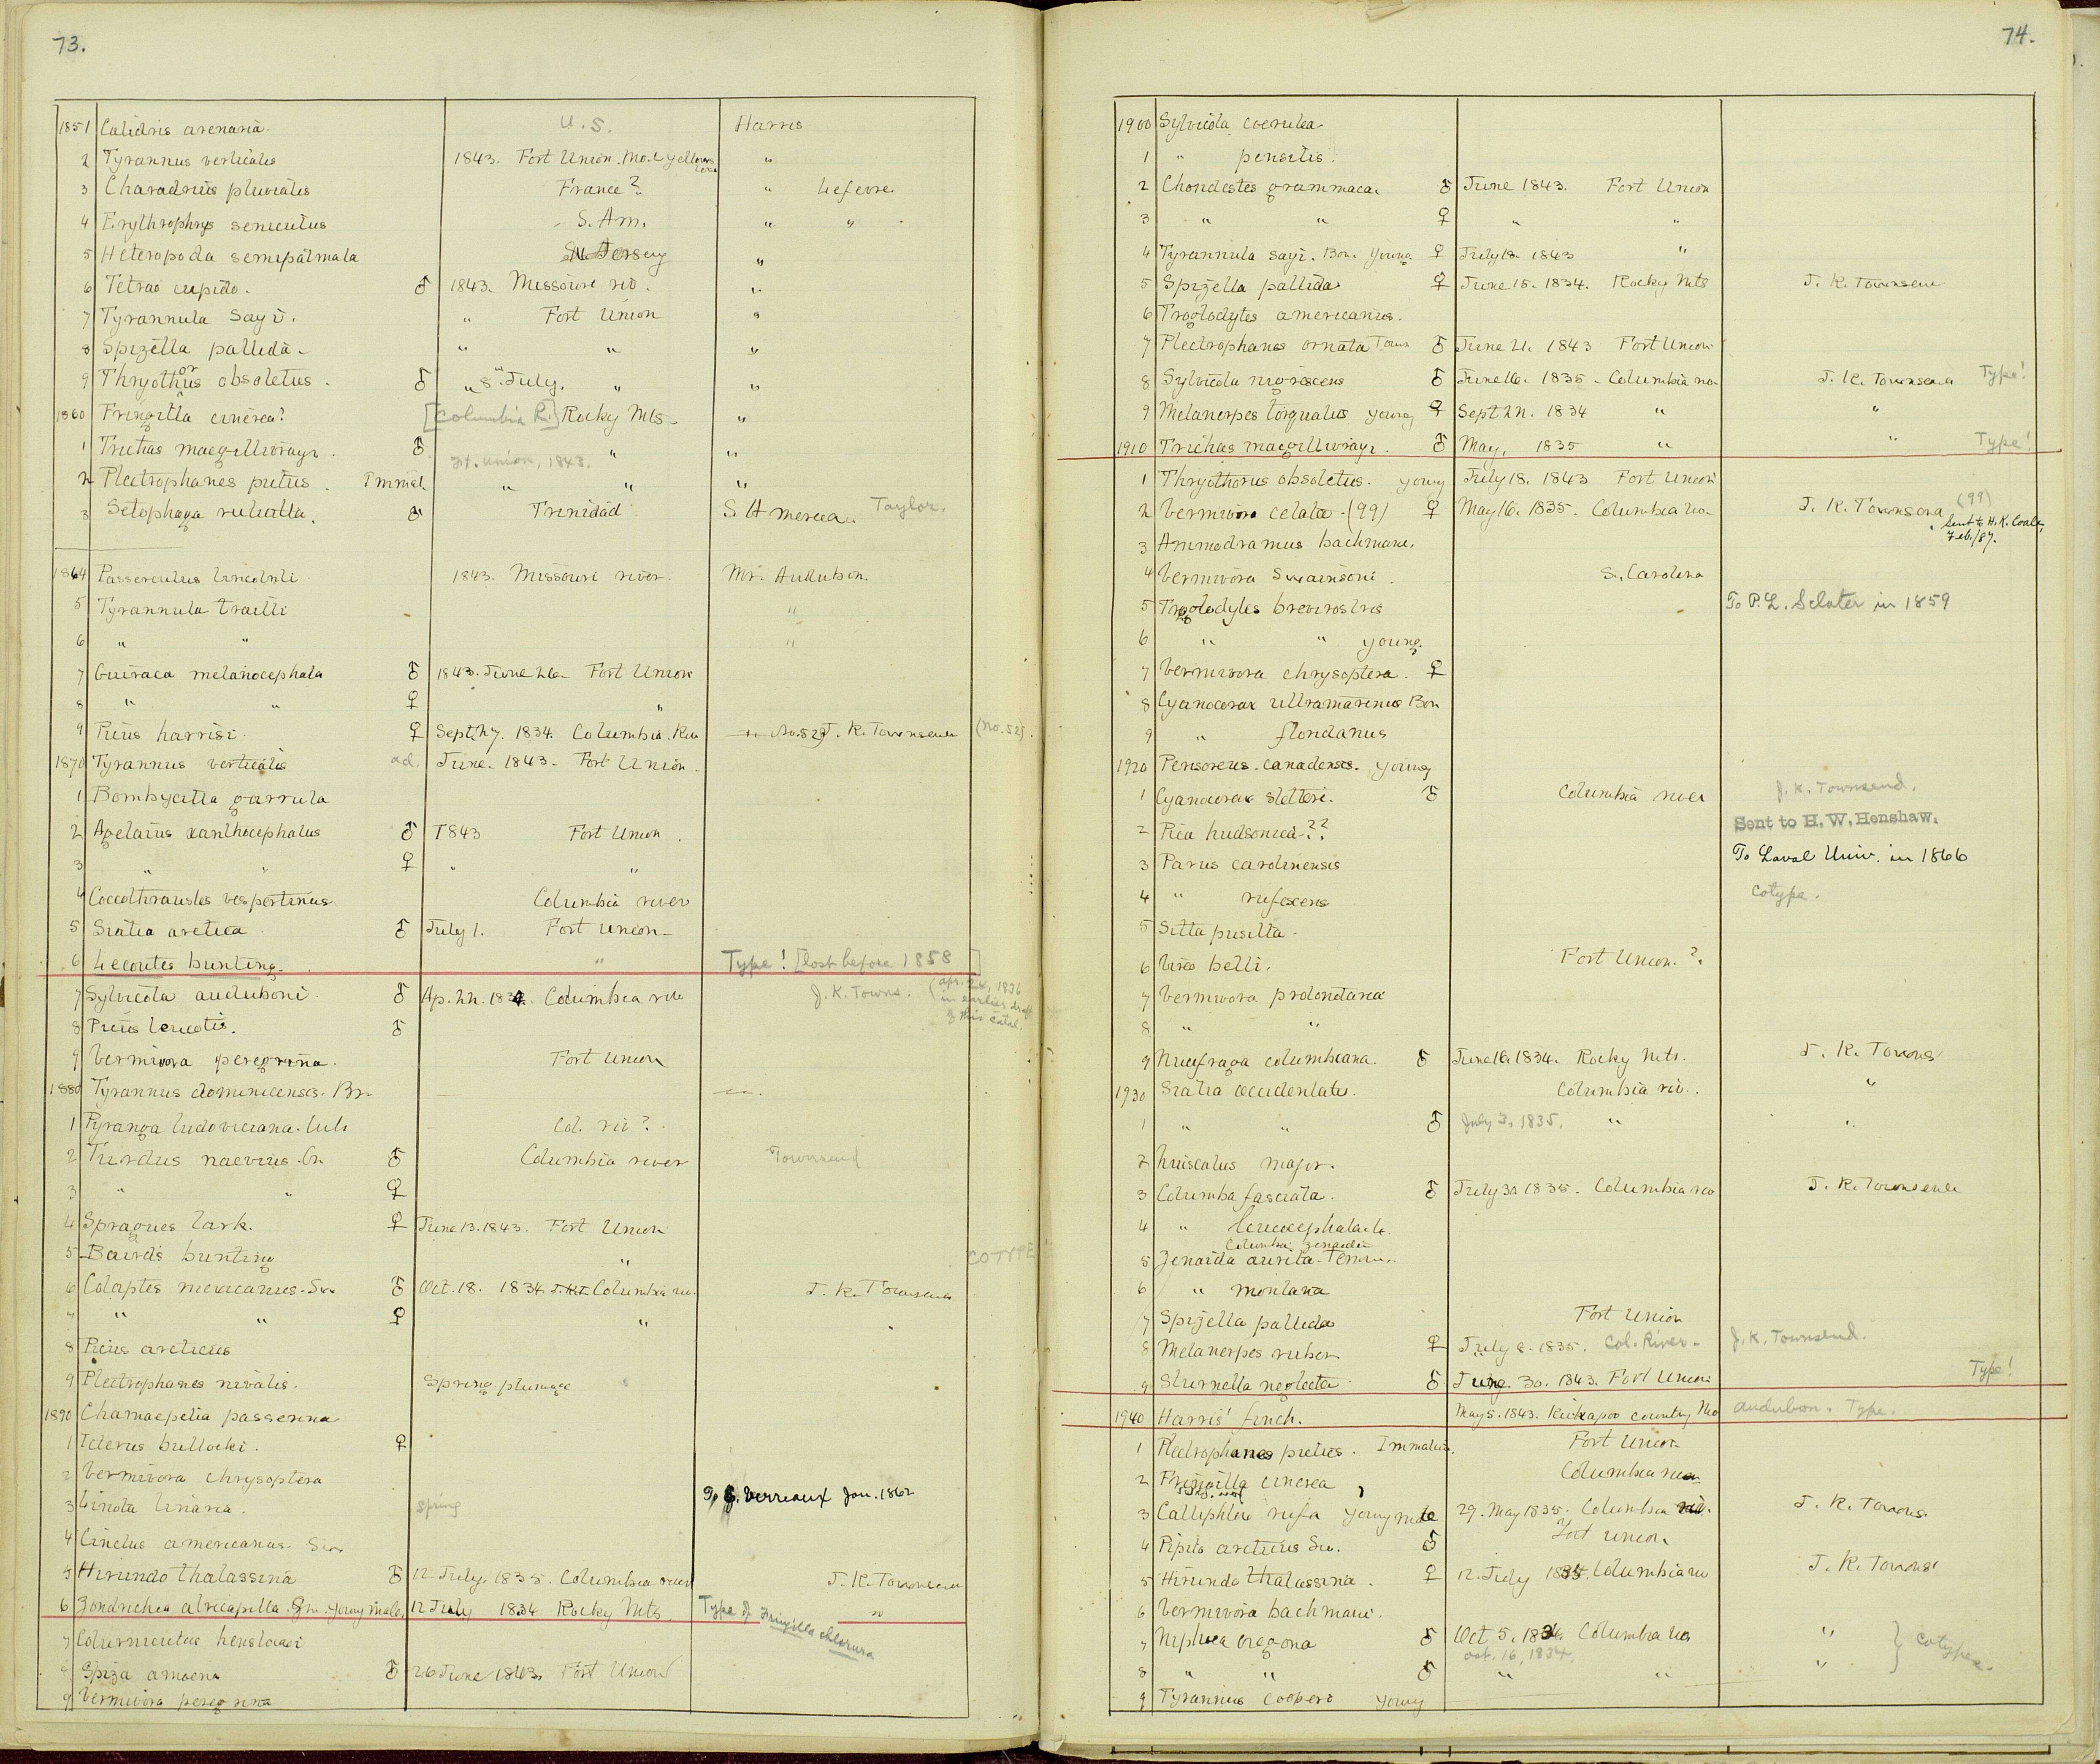 73.
1851 Calidris arenaria. U.S. Harris
2 Tyrannus verticalis 1843. Fort Union. Mo. & Yellows "
3 Charadrius pluvialis France? " Lefevre
4 Erythrophrys seniculus S. Am. " "
5 Heteropoda semipalmata N. Jersey "
6 Tetrao cupido. ♂ 1843. Missouri riv. "
7 Tyrannula Sayi. " Fort Union "
8 Spizella pallida. " " "
9 Thryothorus obsoletus. ♂ " 8 July. " "
1860 Fringilla cinerea? [Columbia R.] Rocky Mts. "
1 Trichas macgillivrayi. ♂ Ft. Union, 1843. " "
2 Plectrophanes pictus. Immat. " " "
3 Setophaga ruticilla. ♂ Trinidad S. America. Taylor.
1864 Passerculus lincolnii 1843. Missouri river. Mr. Audubon.
5 Tyrannula trailli "
6 " " "
7 Guiraca melanocephala ♂ 1843. June 26. Fort Union
8 " " ♀ "
9 Picus harrisi. ♀ Sept. 27. 1834. Columbia. Riv " No. 52 J. K. Townsend (No. 52).
1870 Tyrannus verticalis ad. June. 1843. Fort Union.
1 Bombycilla garrula
2 Agelaius xanthocephalus ♂ 1843 Fort Union.
3 " " ♀ " "
4 Coccothraustes vespertinus Columbia river
5 Sialia arctica ♂ July 1. Fort Union.
6 Lecontes bunting. " Type! [lost before 1858]
7 Sylvicola auduboni. ♂ Ap. 22. 1834. Columbia riv J. K. Towns. (apr. 24, 1836
in earlier draft
of this Catal.
8 Picus leucotis. ♂
9 Vermivora peregrina. Fort Union
1880 Tyrannus dominicensis. Br.
1 Pyranga ludoviciana. Col. riv?
2 Turdus naevius. Gm. ♂ Columbia river Townsend
3 " " ♀
4 Spragues lark. ♀ June 13. 1843. Fort Union
5 Bairds bunting " COTYPE
6 Colaptes mexicanus. Sw. ♂ Oct. 18. 1834. J.K.T. Columbia riv. J. K. Townsend
7 " " ♀ "
8 Picus arcticus
9 Plectrophanes nivalis. Spring plumage
1890 Chamaepelia passerina
1 Icterus bullocki. ♀
2 Vermivora chrysoptera
3 Linota linaria. Spring To J. Verreaux Jan. 1862
4 Cinclus americanus. Sw.
5 Hirundo thalassina ♂ 12 July. 1835. Columbia river J. K. Townsend
6 Zonotrichia atricapilla. Gm. young male. 12 July 1834 Rocky Mts. Type of Fringilla chlorura "
7 Coturniculus henslowi
8 Spiza amoena ♂ 26 June 1843. Fort Union
9 Vermivora peregrina
74.
1900 Sylvicola coerulea
1 " pensilis.
2 Chondestes grammaca. ♂ June 1843. Fort Union
3 " " ♀ " "
4 Tyrannula sayi. Bon. Young ♀ July 18. 1843 "
5 Spizella pallida ♀ June 15. 1834. Rocky Mts J. K. Townsend
6 Troglodytes americanus.
7 Plectrophanes ornata Town ♂ June 21. 1843 Fort Union
8 Sylvicola nigriscens ♂ June 16. 1835. Columbia riv. J. K. Townsend Type!
9 Melanerpes torquatus young ♀ Sept. 22. 1834 " "
1910 Trichas macgillivrayi. ♂ May, 1835 " " Type!
1 Thryothorus obsoletus. young July 18. 1843 Fort Union
2 Vermivora celata. (99) ♀ May 16. 1835. Columbia riv. J. K. Townsend (99)
Sent to H. K. Coale,
Feb./87.
3 Ammodramus bachmani.
4 Vermivora Swainsoni. S. Carolina
5 Troglodytes brevirostris To P. L. Sclater in 1859
6 " " young.
7 Vermivora chrysoptera. ♀
8 Cyanocorax ultramarinus Bon
9 " floridanus
1920 Perisoreus. canadensis. young
1 Cyanocorax stelleri. ♂ Columbia river J. K. Townsend.
2 Pica hudsonica?? Sent to H. W. Henshaw.
3 Parus carolinensis To Laval Univ. in 1866
4 " rufescens Cotype.
5 Sitta pusilla.
6 Vireo belli. Fort Union. ?
7 Vermivora protonotaria
8 " "
9 Nucifraga columbiana. ♂ June 16. 1834. Rocky Mts. J. K. Towns
1930 Sialia occidentalis. Columbia riv. "
1 " " ♂ July 3, 1835. " "
2 Quiscalus major.
3 Columba fasciata. ♂ July 30 1835. Columbia riv J. K. Townsend
4 " leucocephala
Columba zenaida
5 Zenaida aurita. Temm.
6 " montana
7 Spizella pallida Fort Union
8 Melanerpes ruber ♀ July 8. 1835. Col. River. J. K. Townsend.
9 Sturnella neglecta. ♂ June 30. 1843. Fort Union Type!
1940 Harris' finch. May 5. 1843. Kickapoo country Mo Audubon. Type.
1 Plectrophanes pictus. Immature. Fort Union
2 Fringilla cinerea Columbia river
3 Calliphlox rufa young male 29. May 1835. Columbia riv. J. K. Towns.
4 Pipilo arcticus Sw. ♂ Fort Union
5 Hirundo thalassina. ♀ 12. July 1835. Columbia riv J. K. Towns
6 Vermivora bachmani.
7 Niphaea oregona ♂ Oct 5. 1834. Columbia riv " } Cotypes.
8 " " ♂ Oct. 16, 1834. " " "
9 Tyrannus cooperi young